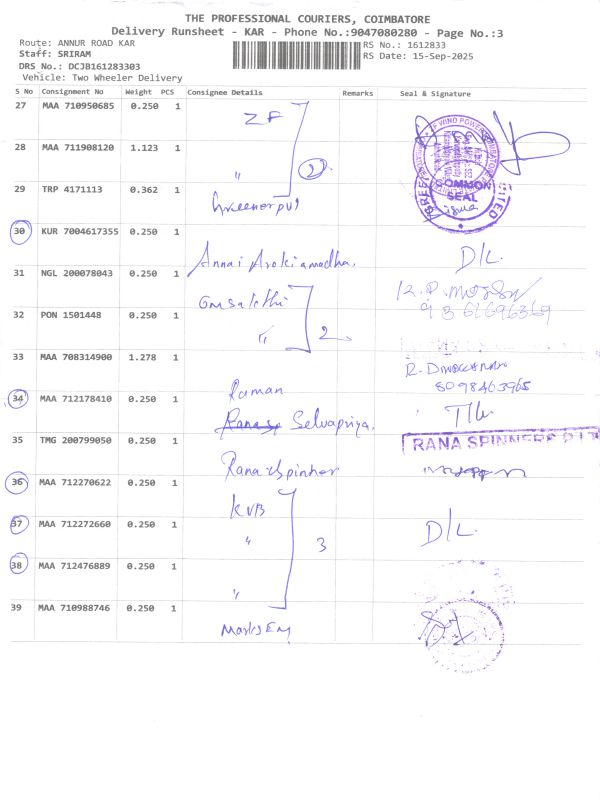 THE PROFESSIONAL COURIERS, COIMBATORE
Delivery Runsheet - KAR - Phone No.:9047080280 - Page No.:3
Route: ANNUR ROAD KAR
RS No.: 1612833
Staff: SRIRAM
RS Date: 15-Sep-2025
DRS No.: DCJB161283303
Vehicle: Two Wheeler Delivery
S No Consignment No Weight PCS Consignee Details Remarks Seal & Signature
27 MAA 710950685 0.250 1 ZF
28 MAA 711908120 1.123 1 " 2
COMMON
SEAL
29 TRP 4171113 0.362 1
30 KUR 7004617355 0.250 1 Annai Arokiamadha. D/L.
31 NGL 200078043 0.250 1 Gmsakthi
32 PON 1501448 0.250 1 " 2
33 MAA 708314900 1.278 1 Raman
8098463965
34 MAA 712178410 0.250 1 Selvapriya.
35 TMG 200799050 0.250 1 Rana Spinner
RANA SPINNERS P LT
36 MAA 712270622 0.250 1 KVB
37 MAA 712272660 0.250 1 " 3 D/L.
38 MAA 712476889 0.250 1 "
39 MAA 710988746 0.250 1